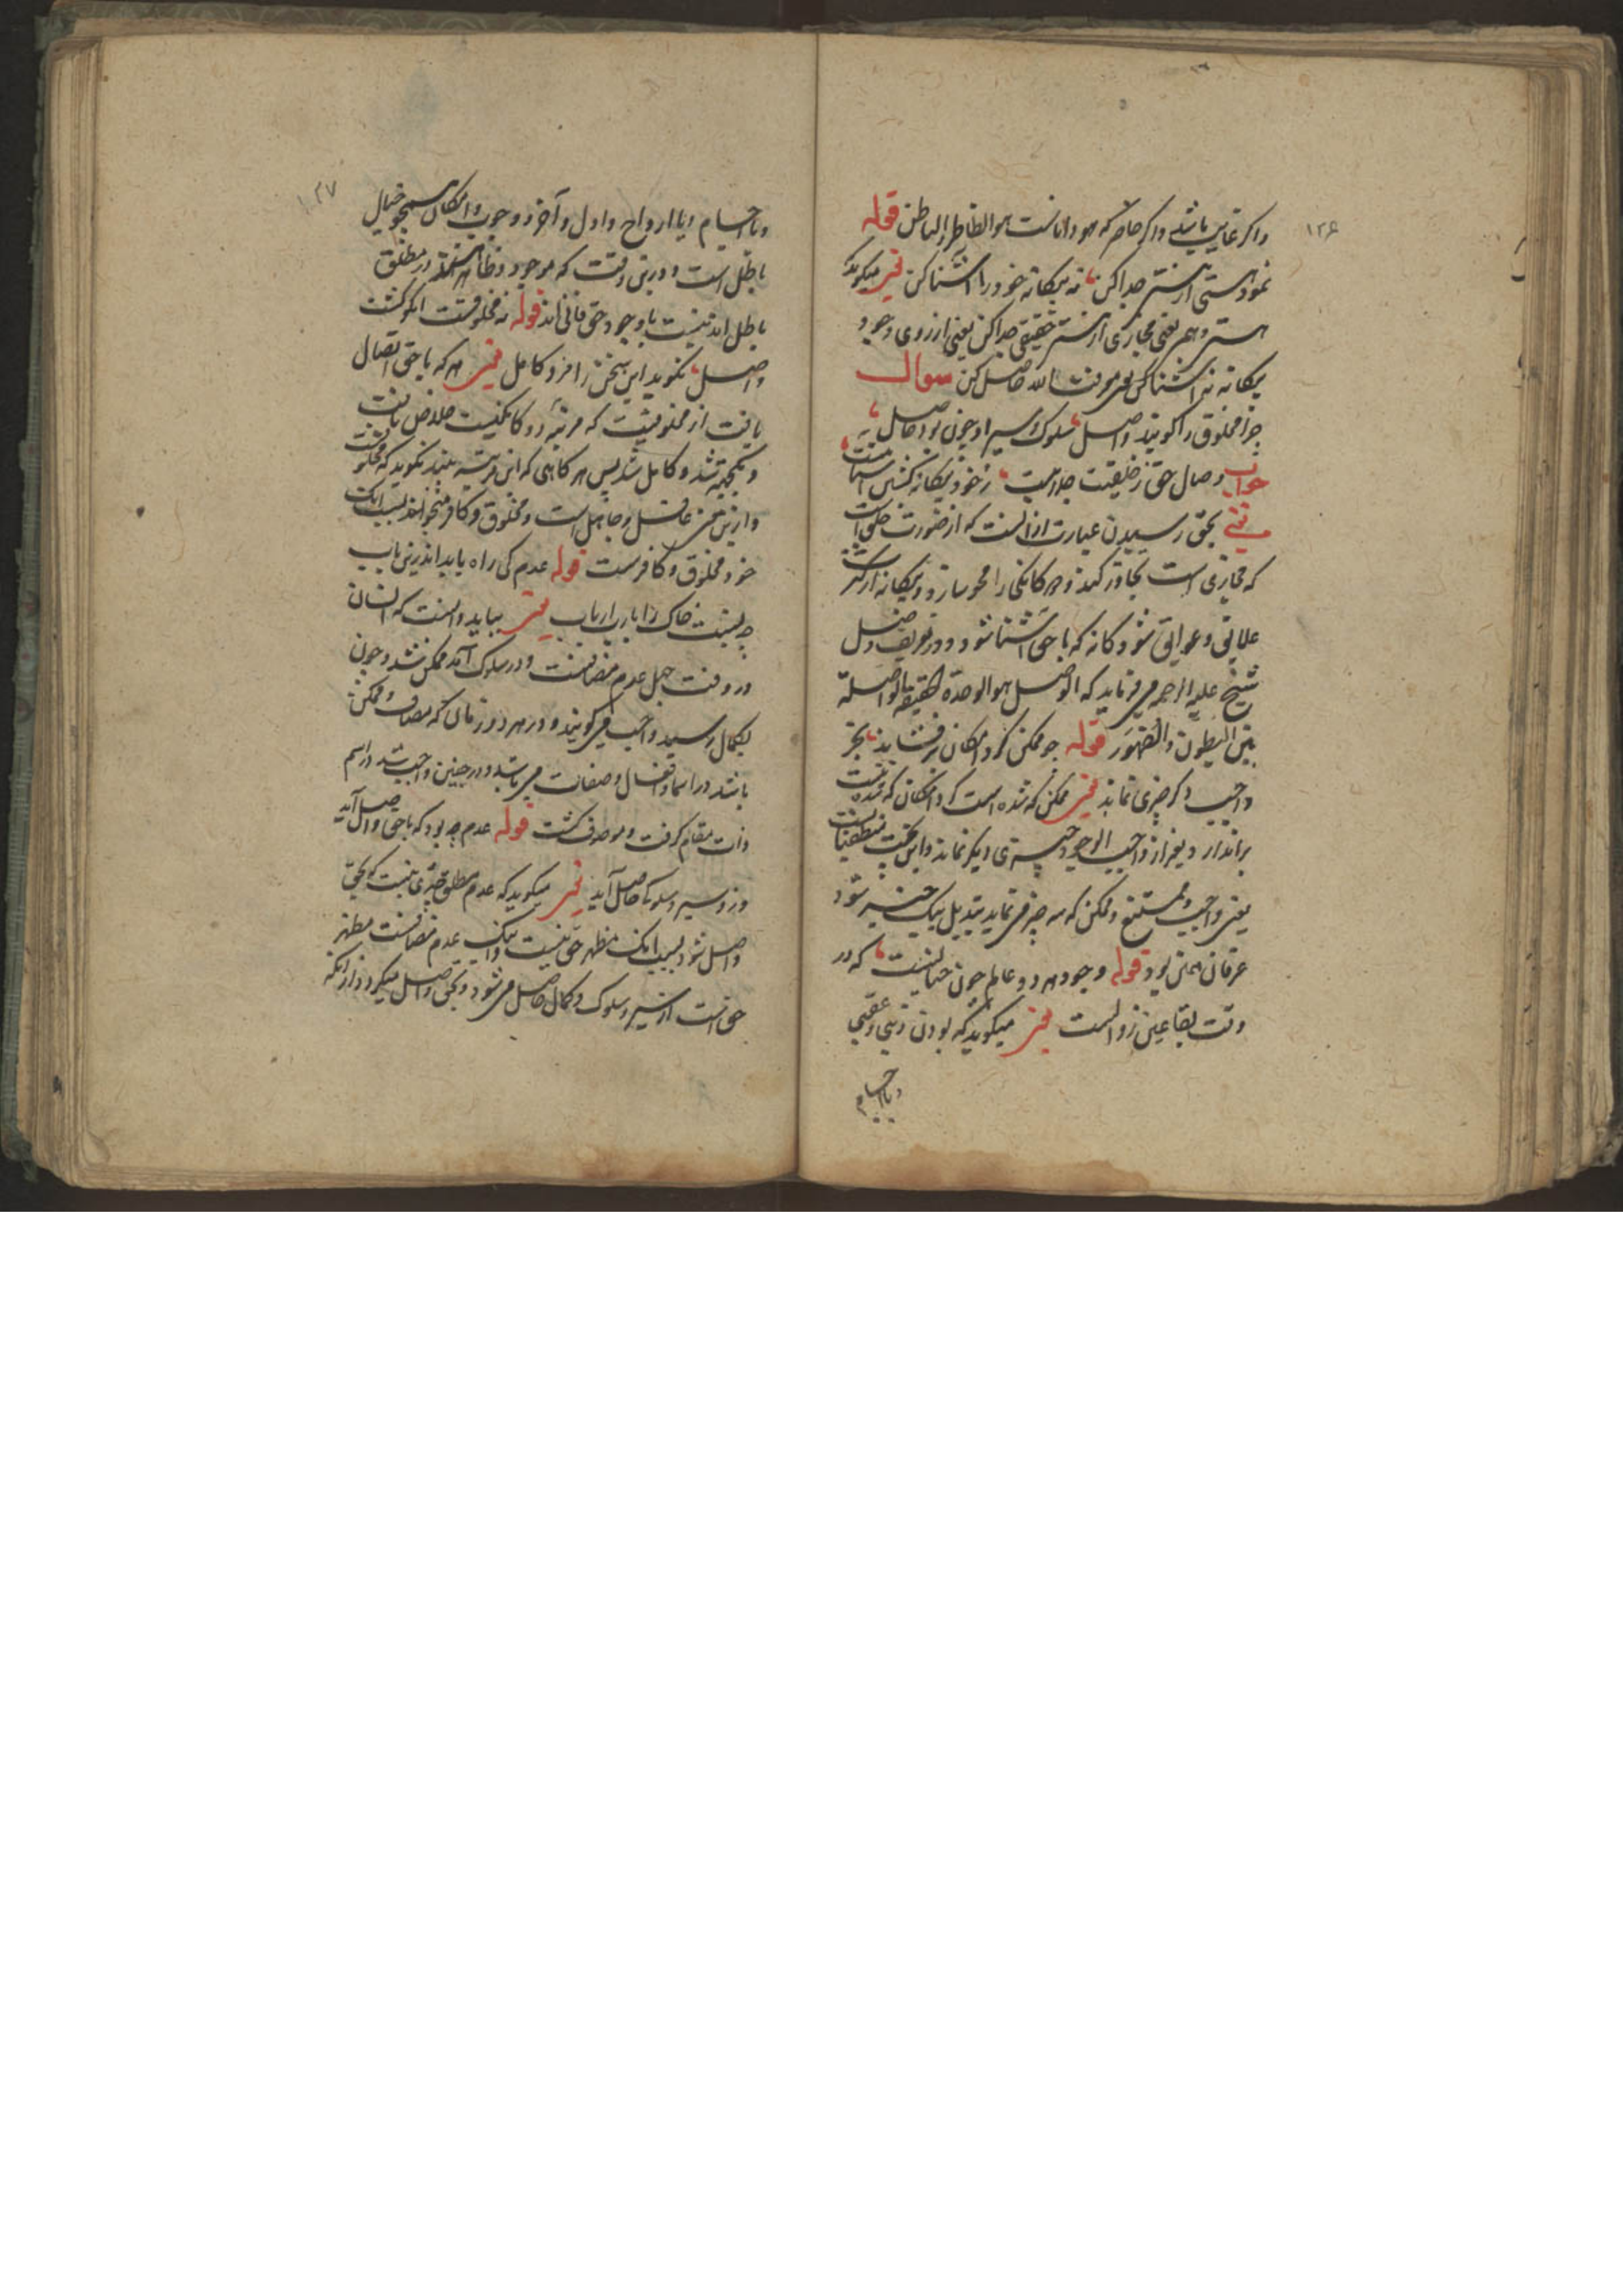 ۱۲۶
واکر غایب باشی واکر حاضر که هو داناست هو الظاهر الباطن قوله
نمود هستی از هستی جدا کن نه بیکانه خود را آشنا کن یعنی میکوید که
هستی وهمی یعنی مجازی از هستی حقیقی جدا کن یعنی از روی وجود
بیکانه نه آشنا کن یعنی معرفت الله حاصل کن سوال
چرا مخلوق را کویند واصل سلوک و سیر او چون بود حاصل
جواب وصال حق ز خلقیت جداییست ز خود بیکانه کشتن آشناییست
یعنی بحق رسیدن عبارت از آنست که از صورت خلقیت
که مجازی است تجاوز کند و هر کانکی را محو سازد و بیکانه از کثرت
علایق و عوایق شود کانه که با حق آشنا شود و در تعریف وصل
شیخ علیه الرحمه می فرماید که الوصل هو الوحدة الحقیقیة الواصلة
بین البطون والظهور قوله چو ممکن کرد امکان برفشاند بجز
واجب دکر چیزی نماند یعنی ممکن که شده است کرد امکان که شده است
براندازد و بغیر از واجب الوجود چیزی دیکر نماند و این نسبت
یعنی واجب و ممتنع و ممکن که سه چیز می نماید تبدیل بیک چیز شود
عرفان همین بود قوله وجود هر دو عالم چون خیالیست که در
وقت بقا عین زوالست یعنی میکوید که بودن دنیی و عقبی
و یا اجسام
۱۲۷
و یا اجسام و یا ارواح و اول و آخر و وجوب و امکان همچو خیال
باطل است و درین وقت که موجود و ظاهر هستند در مطلق
باطل اند نیست با وجود حق فانی اند قوله نه مخلوقست آنکو کشت
واصل نکوید این سخن را مرد کامل یعنی هر که با حق اتصال
یافت از مخلوقیت که مرتبه دوکانکیست خلاص یافت
و یکجهته شد و کامل شد پس هر کاهی که این مرتبه بیند نکوید که مخلوقست
و ازین معنی غافل و جاهل است و مخلوق و کافر میخوانند بسبب آنک
خود مخلوق و کافرست قوله عدم کی راه یابد اندرین باب
چه نسبت خاک را با رب ارباب یعنی بباید دانست که انسان
در وقت جهل عدم مضافست و در سلوک آمد ممکن شد و چون
بکمال رسید واجب می کویند و در هر دو زمان که مضاف و ممکن
باشد در اسما و افعال و صفات می باشد و در چنین واجب شد در اسم
ذات مقام کرفت و موصوف کشت قوله عدم چه بود که با حق واصل آید
وزو سیر و سلوک حاصل آید یعنی میکوید که عدم مطلق چیزی نیست که بحق
واصل شود بسبب آنک مظهر حق نیست و لیک عدم مضافست مظهر
حق است از سیر و سلوک و کمال حاصل می شود و بحق واصل میکردد از آنکه